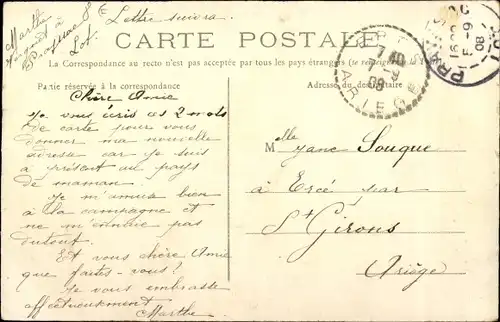 Lettre suivra.
Marthe
à
Lot.
CARTE POSTALE
La Correspondance au recto n'est pas acceptée par tous les pays étrangers (se renseigner à la
Partie réservée à la correspondance
Adresse du destinataire
7-9
08
ARIEGE
16
9
08
Chère Amie
Je vous écris ces 2 mots
de carte pour vous
donner ma nouvelle
adresse car je suis
à présent au pays
de maman.
Je m'amuse bien
à la campagne et
ne m'ennuie pas
dutout.
Et vous chère Amie
que faites-vous?
Je vous embrasse
affectueusement
Marthe
Mlle Jane Souque
à Ercé par
St Girons
Ariège